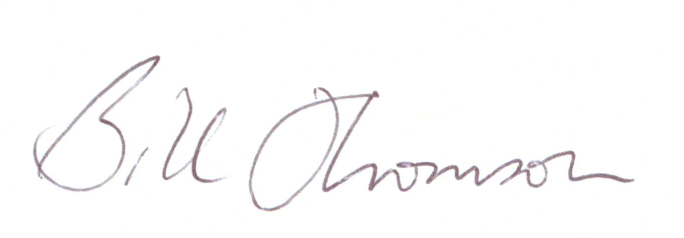 Bill Thomson